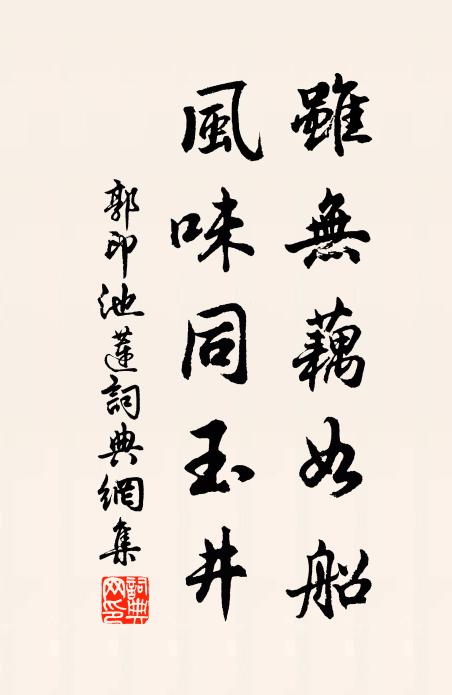 雖無藕如船
風味同玉井
郭印池蓮詞典網集
詞典網印